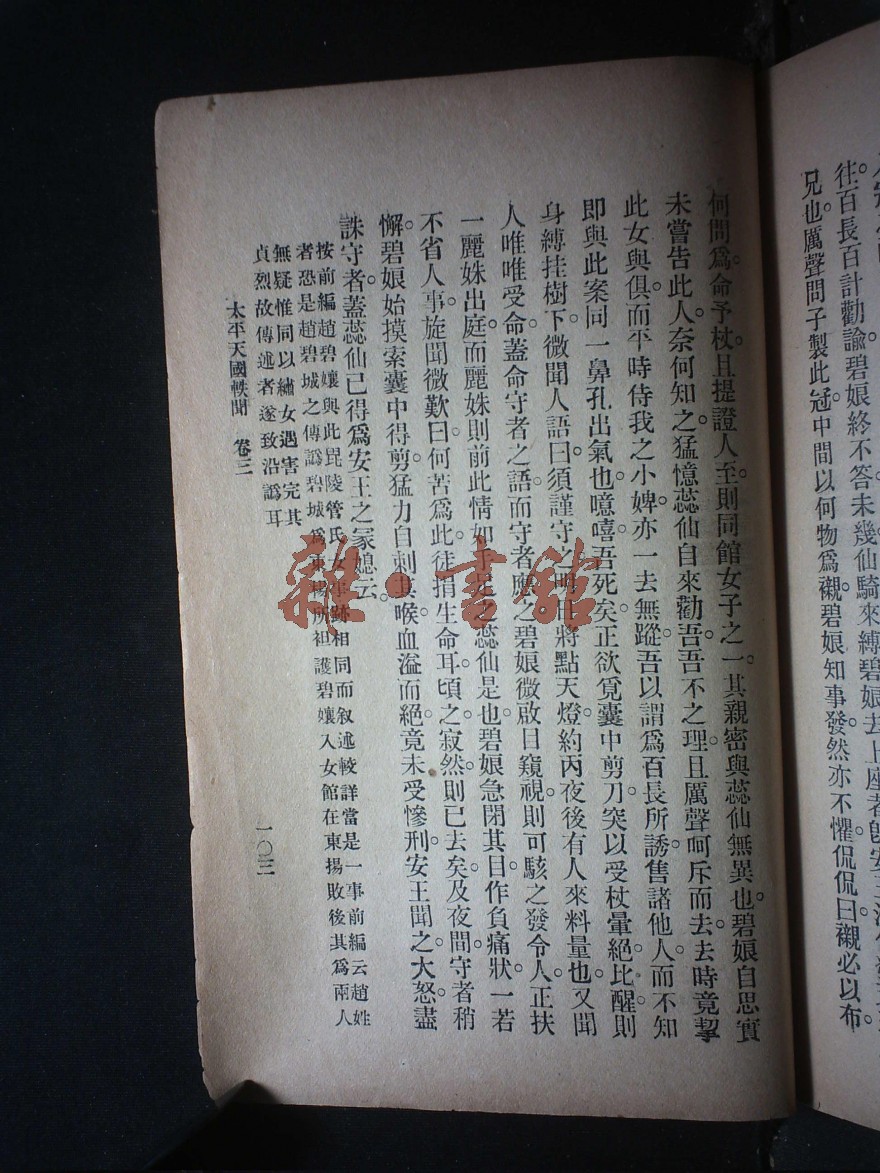 往。百長百計勸諭。碧娘終不答。未幾仙騎來縛碧娘去。上座者卽安王
兄也。厲聲問子製此冠。中間以何物爲襯。碧娘知事發。然亦不懼。侃侃曰。襯必以布。
何問爲。命予杖。且提證人。至則同館女子之一。其親密與蕊仙無異也。碧娘自思實
未嘗告此人。奈何知之。猛憶蕊仙自來勸吾。吾不之理。且厲聲呵斥而去。去時竟挈
此女與俱。而平時侍我之小婢。亦一去無蹤。吾以謂爲百長所誘售諸他人。而不知
卽與此案同一鼻孔出氣也。噫嘻。吾死矣。正欲覓囊中剪刀。突以受杖暈絕。比醒則
身縛挂樹下。微聞人語曰。須謹守之。明日將點天燈。約丙夜後有人來料量也。又聞
人唯唯受命。蓋命守者之語。而守者應之。碧娘微啟目窺視。則可駭之發令人。正扶
一麗姝出庭。而麗姝則前此情如手足之蕊仙是也。碧娘急閉其目。作負痛狀。一若
不省人事。旋聞微歎曰。何苦爲此。徒捐生命耳。頃之寂然。則已去矣。及夜間。守者稍
懈。碧娘始摸索囊中得剪。猛力自刺其喉。血溢而絕。竟未受慘刑。安王聞之大怒。盡
誅守者。蓋蕊仙已得爲安王之家媳云。
按前編趙碧孃與此毘陵管氏女事跡相同而叙述較詳當是一事前編云趙姓
者恐是趙碧城之傳譌碧城爲東楊所袒護碧孃入女館在東揚敗後其爲兩人
無疑惟同以繡女遇害完其
貞烈故傳述者遂致沿譌耳
太平天國軼聞 卷三 一〇三
雜·書館